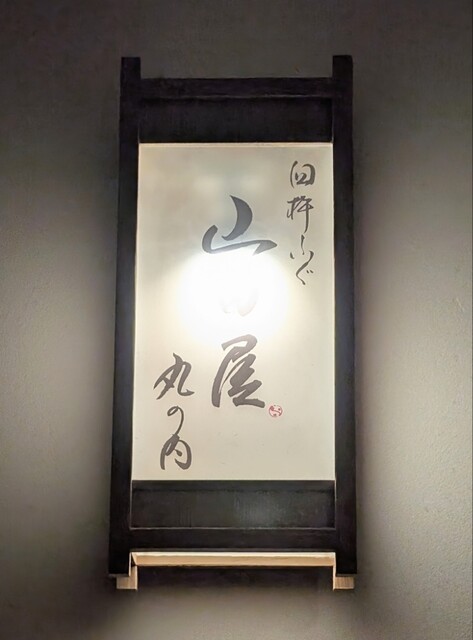 臼杵ふぐ
山田屋
丸の内